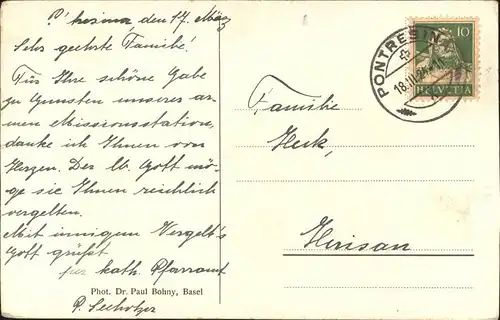 P'tresina, den 17. März
Sehr geehrte Familie!
Für Ihre schöne Gabe
zu Gunsten unserer ar-
men Missionsstation,
danke ich Ihnen von
Herzen. Der lb. Gott mö-
ge sie Ihnen reichlich
vergelten.
Mit innigem Vergelt's
Gott grüßt
für kath. Pfarramt
Phot. Dr. Paul Bohny, Basel
P.
PONTRESINA
18.III.24
10
HELVETIA
Familie
Heck,
Herisau